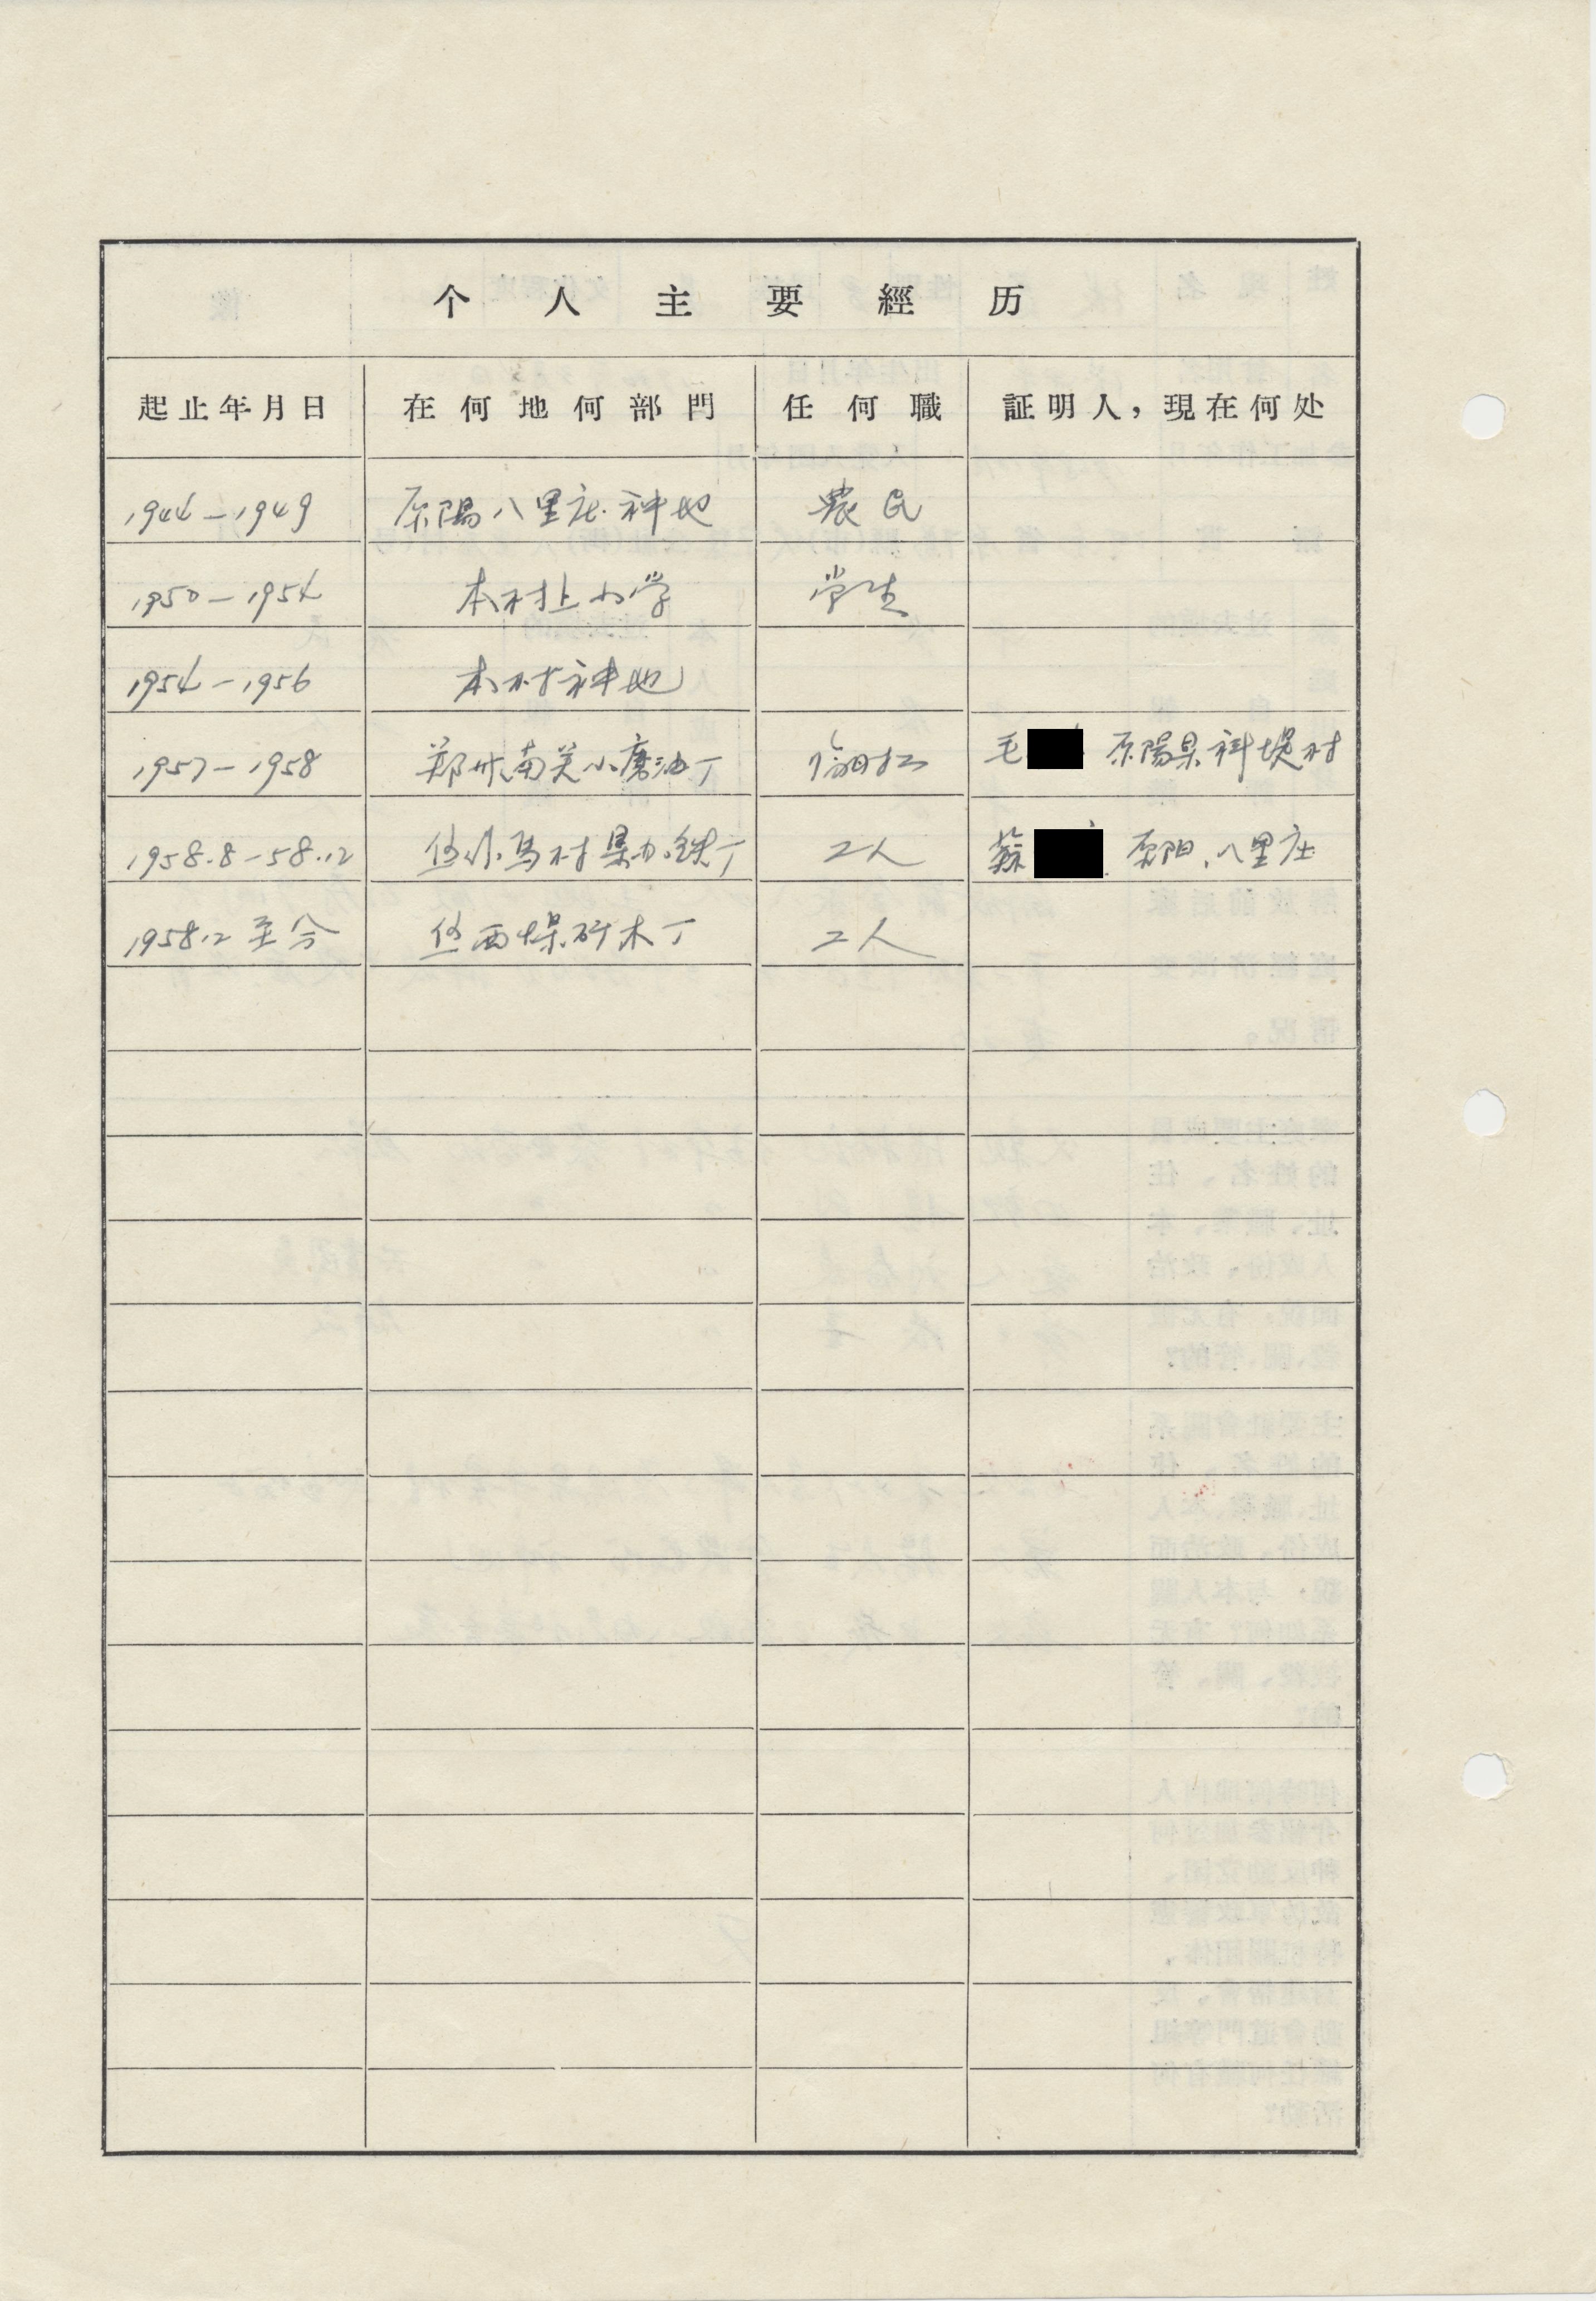 个人主要經历
起止年月日 在何地何部門 任何職 証明人，現在何处
1944—1949 原陽八里庄种地 農民
1950—1954 本村上小学 学生
1954—1956 本村种地
1957—1958 郑州南关小磨油厂 临时工 毛 原陽县 堤村
1958.8—58.12 焦作马村县办铁厂 工人 蘇 原阳、八里庄
1958.12至今 焦西煤矿木厂 工人